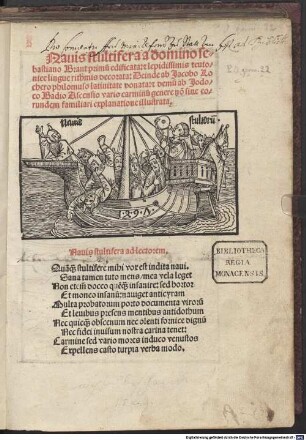 Nauis stultifera a domino se-
bastiano Brant primū edificata: & lepidissimis teuto-
nice lingue rithmis decorata: Deinde ab Jacobo Lo-
chero philomuso latinitate donata: & demū ab Jodo-
co Badio Ascensio vario carminū genere nō sine eo-
rundem familiari explanatione illustrata.
Nauis
stultorū
Nauis stultifera ad lectorem.
Quāq̃ stultifere mihi vox est indita naui.
Sana tamen tuto mens mea vela leget
Non etsi docco quēq̃ insanire: sed hortor
Et moneo insanū: nauget anticyram
Multa probatorum porto documenta virorū
Et leuibus presens mentibus antidothum
Nec quicq̃ obscenum nec olenti fornice dignū
Nec fidei inuisum nostra carina tenet:
Carmine sed vario mores induco venustos
Expellens casto turpia verba modo.
BIBLIOTHECA
REGIA
MONACENSIS.